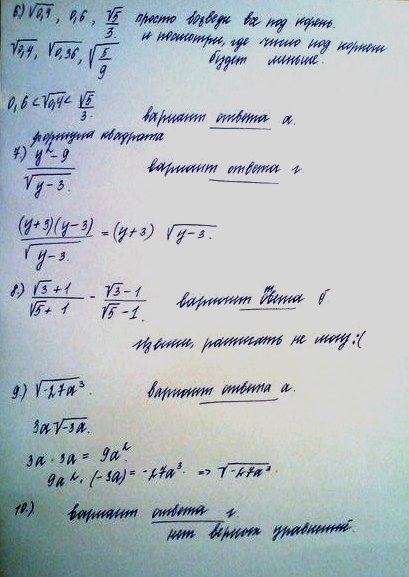 6) √0,4 , 0,6 , √5/3 просто возведи все под корень.
и посмотри, где число под корнем
√0,4, √0,36, √(5/9) будет меньше.
0,6 < √0,4 < √5/3. вариант ответа а.
формула квадрата
7.) (y²-9)/√(y-3) вариант ответа г.
(y+3)(y-3)/√(y-3) = (y+3) √(y-3).
8.) (√3+1)/(√5+1) - (√3-1)/(√5-1) вариант ответа б
Извини, расписать не могу :(
9.) √(-27a³) вариант ответа а.
3a√(-3a).
3a · 3a = 9a².
9a² · (-3a) = -27a³ => √(-27a³)
10.) вариант ответа г.
нет верных уравнений.